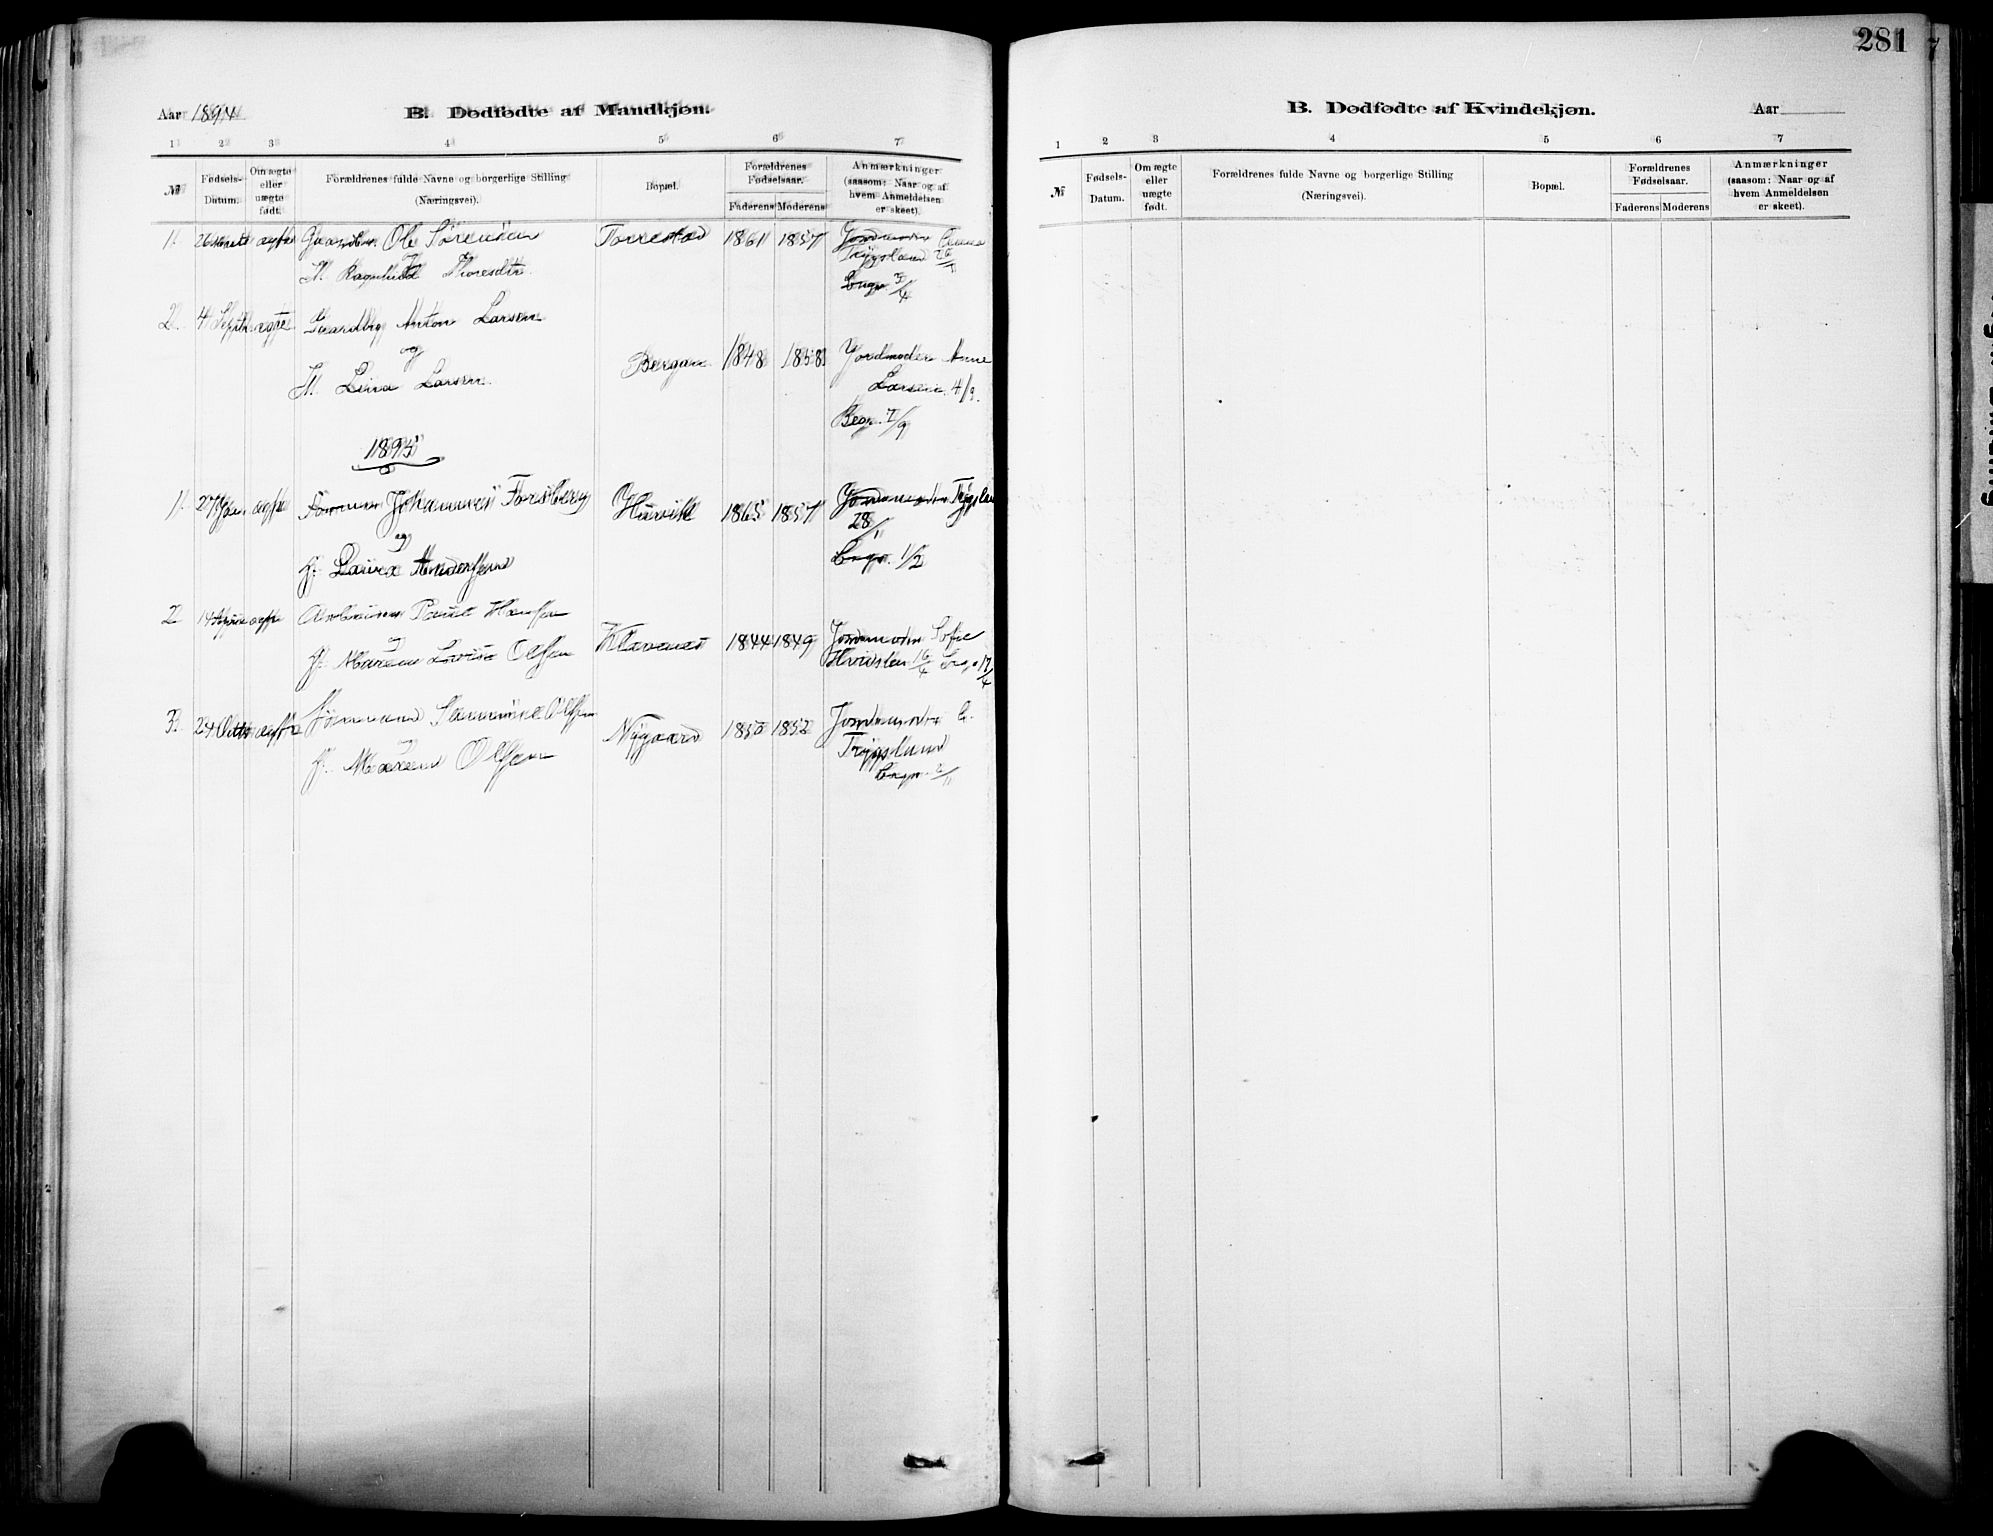 281
Aar 1894
B. Dødfødte af Mandkjøn.
1 2 3 4 5 6 7
№
Fødsels-
Datum.
Om ægte
eller
uægte
født.
Forældrenes fulde Navne og borgerlige Stilling
(Næringsvei).
Bopæl.
Forældrenes
Fødselsaar.
Faderens Moderens
Anmærkninger
(saasom: Naar og af
hvem Anmeldelsen
er skeet).
1. 26 ægte Ole Sørensen 1861 1857 Jordmoder Anna
og Trygsland
H. Ragnhild Thoresdtr.
Begr. 3/4
2. 4 Septbr ægte Gaardbr Anton Larsen
og Bergan 1848 1858 Jordmoder Anne
H. Lina Larsen. Larsen 4/9.
Begr. 7/9
1895
1. 27 Jan ægte Johannes Forsberg Huvik 1865 1857 Jordmoder Trygsland
28/1
og
H. Laura Andersen Begr. 1/2
2 14 April ægte Paul Hansen
og Klavenes 1844 1849 Jordmoder Sofie
H. Maren Lovise Olsen 16/4 Begr. 17/4
3. 24 Octbr ægte Olsen Jordmoder
og Nygaard 1850 1852 Trygsland
H. Maren Olsen
Begr.
B. Dødfødte af Kvindekjøn.
Aar
1 2 3 4 5 6 7
№
Fødsels-
Datum.
Om ægte
eller
uægte
født.
Forældrenes fulde Navne og borgerlige Stilling
(Næringsvei).
Bopæl.
Forældrenes
Fødselsaar.
Faderens Moderens
Anmærkninger
(saasom: Naar og af
hvem Anmeldelsen
er skeet).